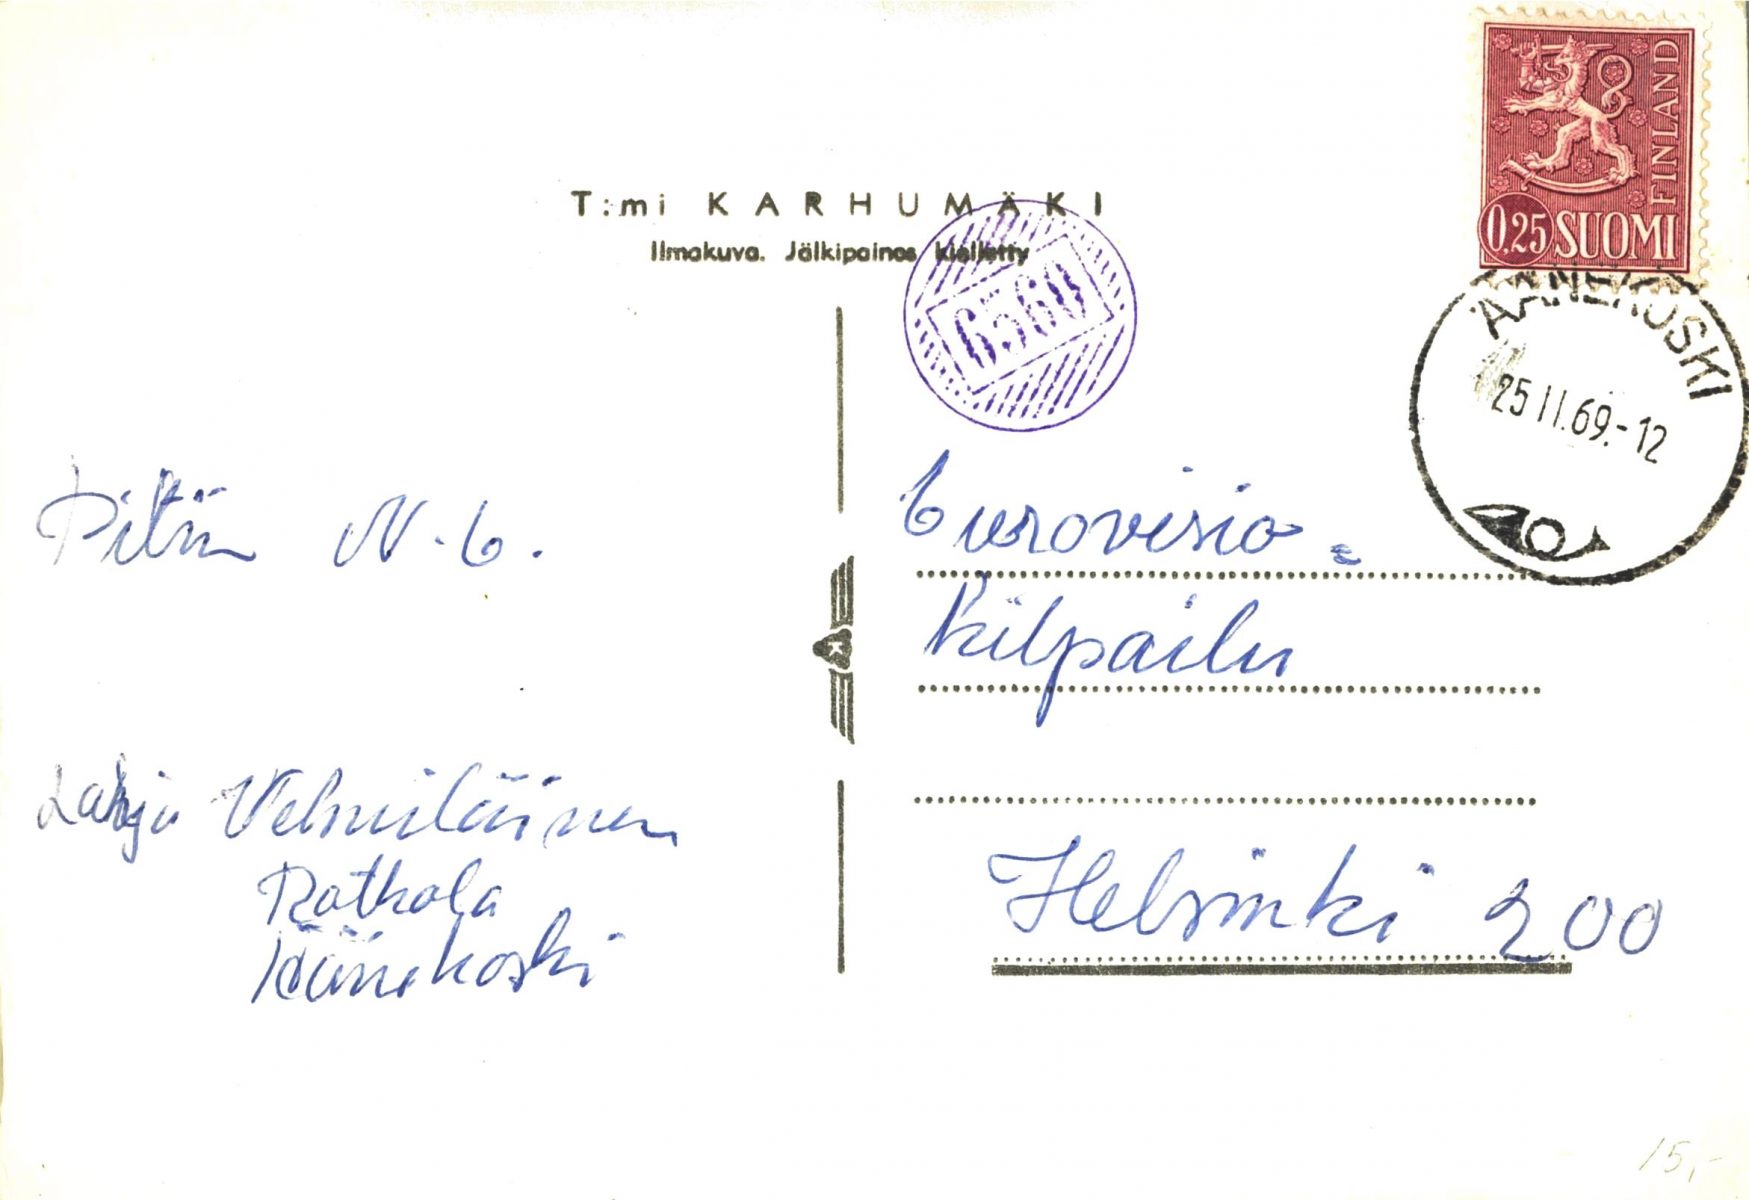 T:mi KARHUMÄKI
Ilmakuva. Jälkipainos kielletty
FINLAND
0,25 SUOMI
ÄÄNEKOSKI
25 II.69.-12
6560
Pitän N. 6.
Eurovisio-
Kilpailu
K
Helsinki 200
Lahja
Rotkola
Äänekoski
15,-